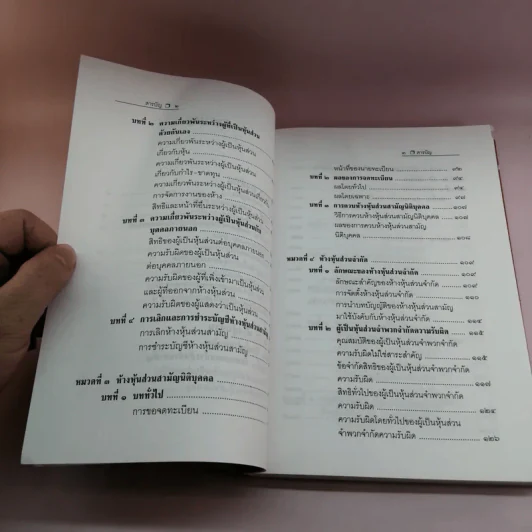 สารบัญ ๑
บทที่ ๒ ความเกี่ยวพันระหว่างผู้เป็นหุ้นส่วน
ด้วยกันเอง
ความเกี่ยวพันระหว่างผู้เป็นหุ้นส่วน
เกี่ยวกับหุ้น
ความเกี่ยวพันระหว่างผู้เป็นหุ้นส่วน
เกี่ยวกับกำไร - ขาดทุน
การจัดการงานของห้าง
สิทธิและหน้าที่ที่ระหว่างผู้เป็นหุ้นส่วน
บทที่ ๓ ความเกี่ยวพันระหว่างผู้เป็นหุ้นส่วนกับ
บุคคลภายนอก
สิทธิของผู้เป็นหุ้นส่วนต่อบุคคลภายนอก
ความรับผิดของผู้เป็นหุ้นส่วน
ต่อบุคคลภายนอก
ความรับผิดของผู้ที่เพิ่งเข้ามาเป็นหุ้นส่วน
และผู้ที่ออกจากห้างหุ้นส่วน
ความรับผิดของผู้แสดงว่าเป็นหุ้นส่วน
บทที่ ๔ การเลิกและการชำระบัญชีห้างหุ้นส่วนสามัญ
การเลิกห้างหุ้นส่วนสามัญ
การชำระบัญชีห้างหุ้นส่วนสามัญ
หมวดที่ ๓ ห้างหุ้นส่วนสามัญนิติบุคคล
บทที่ ๑ บททั่วไป
การขอจดทะเบียน
สารบัญ
หน้าที่ของนายทะเบียน
บทที่ ๒ ผลของการจดทะเบียน ๙๔
ผลโดยทั่วไป ๙๔
ผลโดยเฉพาะ
บทที่ ๓ การควบห้างหุ้นส่วนสามัญนิติบุคคล ๑๐๗
วิธีการควบห้างหุ้นส่วนสามัญนิติบุคคล ๑๐๗
ผลของการควบห้างหุ้นส่วนสามัญ
นิติบุคคล ๑๐๘
หมวดที่ ๔ ห้างหุ้นส่วนจำกัด ๑๐๙
บทที่ ๑ ลักษณะของห้างหุ้นส่วนจำกัด ๑๐๙
ลักษณะสำคัญของห้างหุ้นส่วนจำกัด ๑๐๙
การจัดตั้งห้างหุ้นส่วนจำกัด ๑๑๐
การนำบทบัญญัติของห้างหุ้นส่วนสามัญ
มาใช้บังคับกับห้างหุ้นส่วนจำกัด
บทที่ ๒ ผู้เป็นหุ้นส่วนจำพวกจำกัดความรับผิด ๑๑๕
คุณสมบัติของผู้เป็นหุ้นส่วนจำพวกจำกัด
ความรับผิดไม่ใช่สาระสำคัญ ๑๑๕
ข้อจำกัดสิทธิของผู้เป็นหุ้นส่วนจำพวกจำกัด
ความรับผิด ๑๑๗
สิทธิทั่วไปของผู้เป็นหุ้นส่วนจำพวกจำกัด
ความรับผิด ๑๒๔
ความรับผิดโดยทั่วไปของผู้เป็นหุ้นส่วน
จำพวกจำกัดความรับผิด ๑๒๖